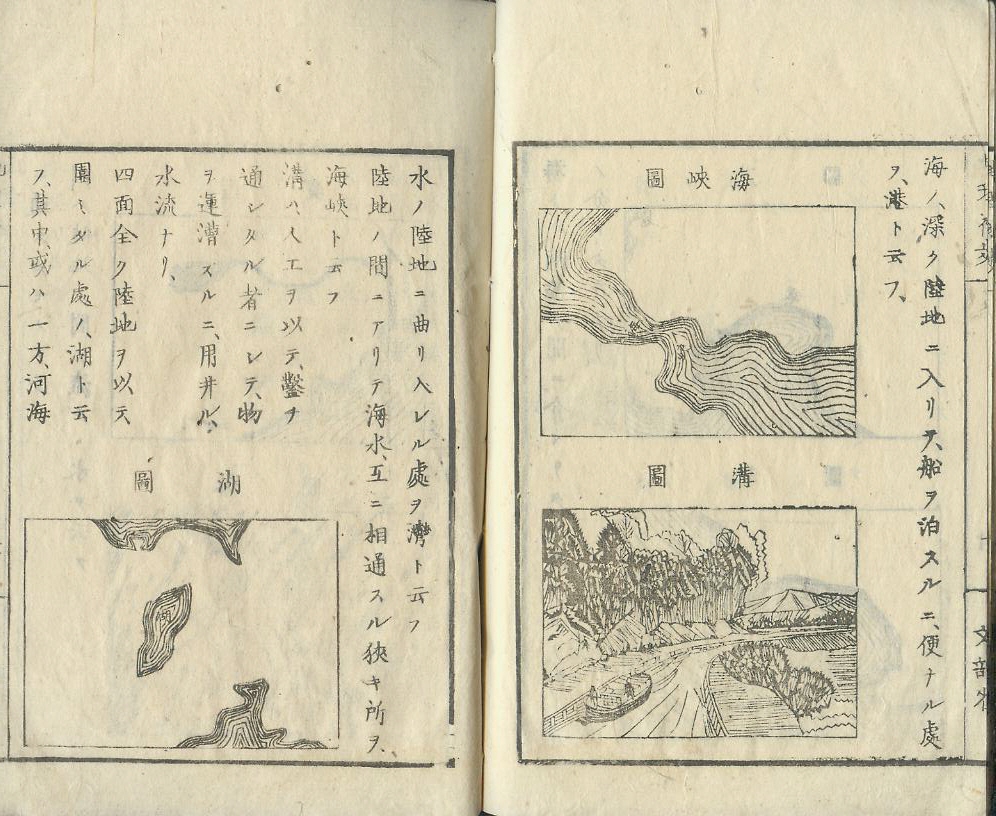 海ノ、深ク陸地ニ入リテ、船ヲ泊スルニ、便ナル處
ヲ、港ト云フ、
海峽圖
溝圖
文部省
水ノ陸地ニ曲リ入レル處ヲ灣ト云フ
陸地ノ間ニアリテ海水、互ニ相通スル狹キ所ヲ、
海峽ト云フ
溝ハ、人工ヲ以テ、鑿チ
通シタル者ニシテ、物
ヲ運漕スルニ、用井ル、
水流ナリ、
四面全ク陸地ヲ以テ
圍ミタル處ハ、湖ト云
フ、其中、或ハ一方、河海
湖圖
湖